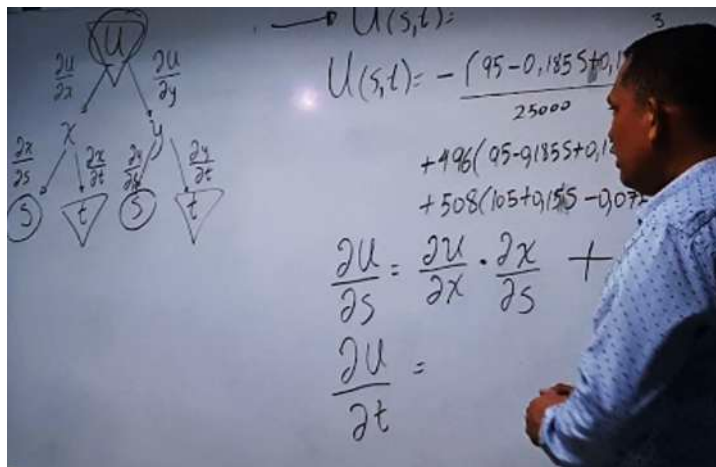 U
∂U/∂x ∂U/∂y
x y
∂x/∂s ∂x/∂t ∂y/∂s ∂y/∂t
S t S t
→ U(s,t)=
3
U(s,t)= -(95-0,185S+0,1
25000
+496(95-0,185S+0,1
+508(105+0,15S-0,07
∂U/∂s = ∂U/∂x · ∂x/∂s +
∂U/∂t =